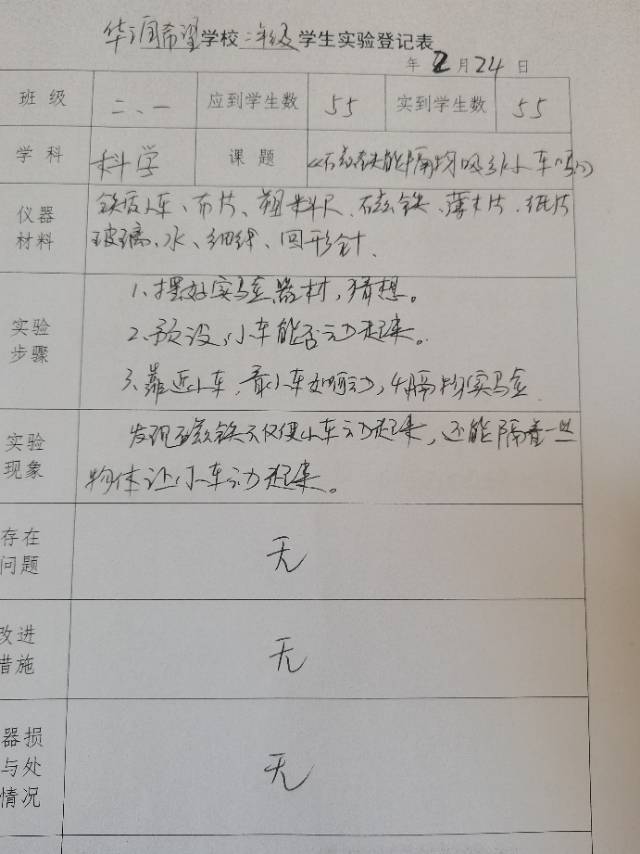 华润希望学校二年级学生实验登记表
年2月24日
班级 二、一 应到学生数 55 实到学生数 55
学科 科学 课题 《磁铁能隔物吸引小车吗》
仪器材料 铁皮小车、布片、塑料尺、磁铁、薄木片、纸片
玻璃、水、细线、回形针、
实验步骤 1、摆好实验器材,猜想。
2、预设,小车能否动起来。
3、靠近小车,看小车如何动,4隔物实验
实验现象 发现磁铁不仅使小车动起来,还能隔着一些
物体让小车动起来。
存在问题 无
改进措施 无
器损与处情况 无